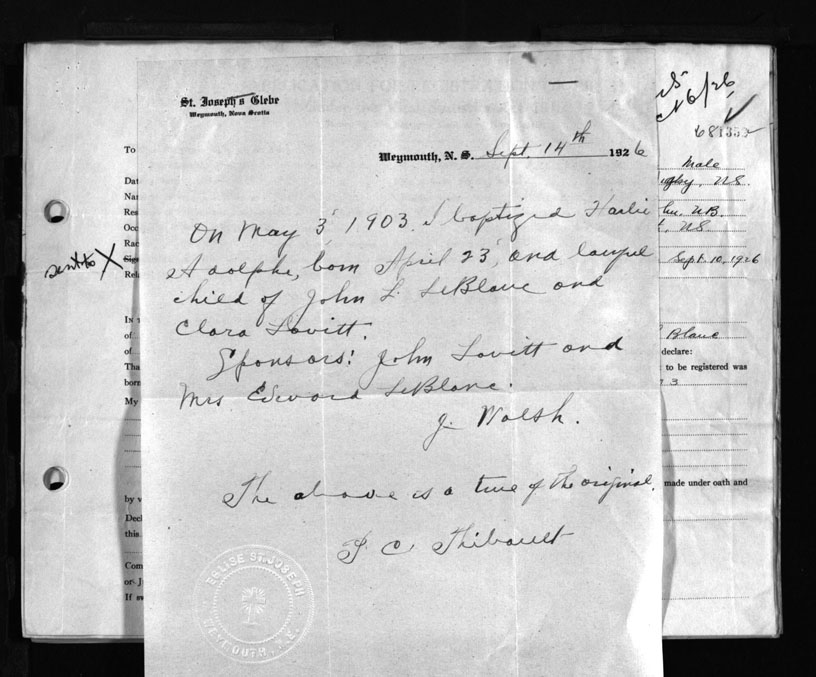 St. Joseph's Glebe
Weymouth, Nova Scotia
Weymouth, N. S. Sept. 14th 1926
On May 3, 1903 I baptized Harlie
Adolphe, born April 23, and lawful
child of John L. LeBlanc and
Clara Lovitt.
Sponsors: John Lovitt and
Mrs Edward LeBlanc.
J. Walsh.
The above is a true of the original.
J. C. Thibault
EGLISE ST. JOSEPH
WEYMOUTH, N.E.
To
Dat
Nam
Res
Occ
Rac
Sig
Rela
sent to X
IN T
of
of
Tha
born
My
by v
Decl
this
Com
or J
If sw
6/26
Male
N.S.
N.B.
N.S.
Sept. 10, 1926
Blanc
declare:
to be registered was
3
made under oath and